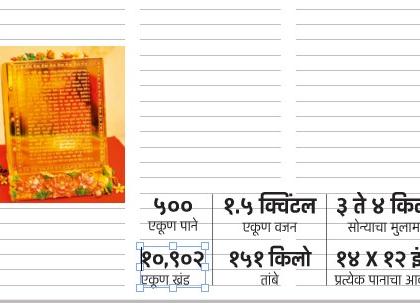 ५०० १.५ क्विंटल ३ ते ४
एकूण पाने एकूण वजन सोन्याचा
१०,९०२ १५१ किलो १४ X १२
एकूण खंड तांबे प्रत्येक पानाचा